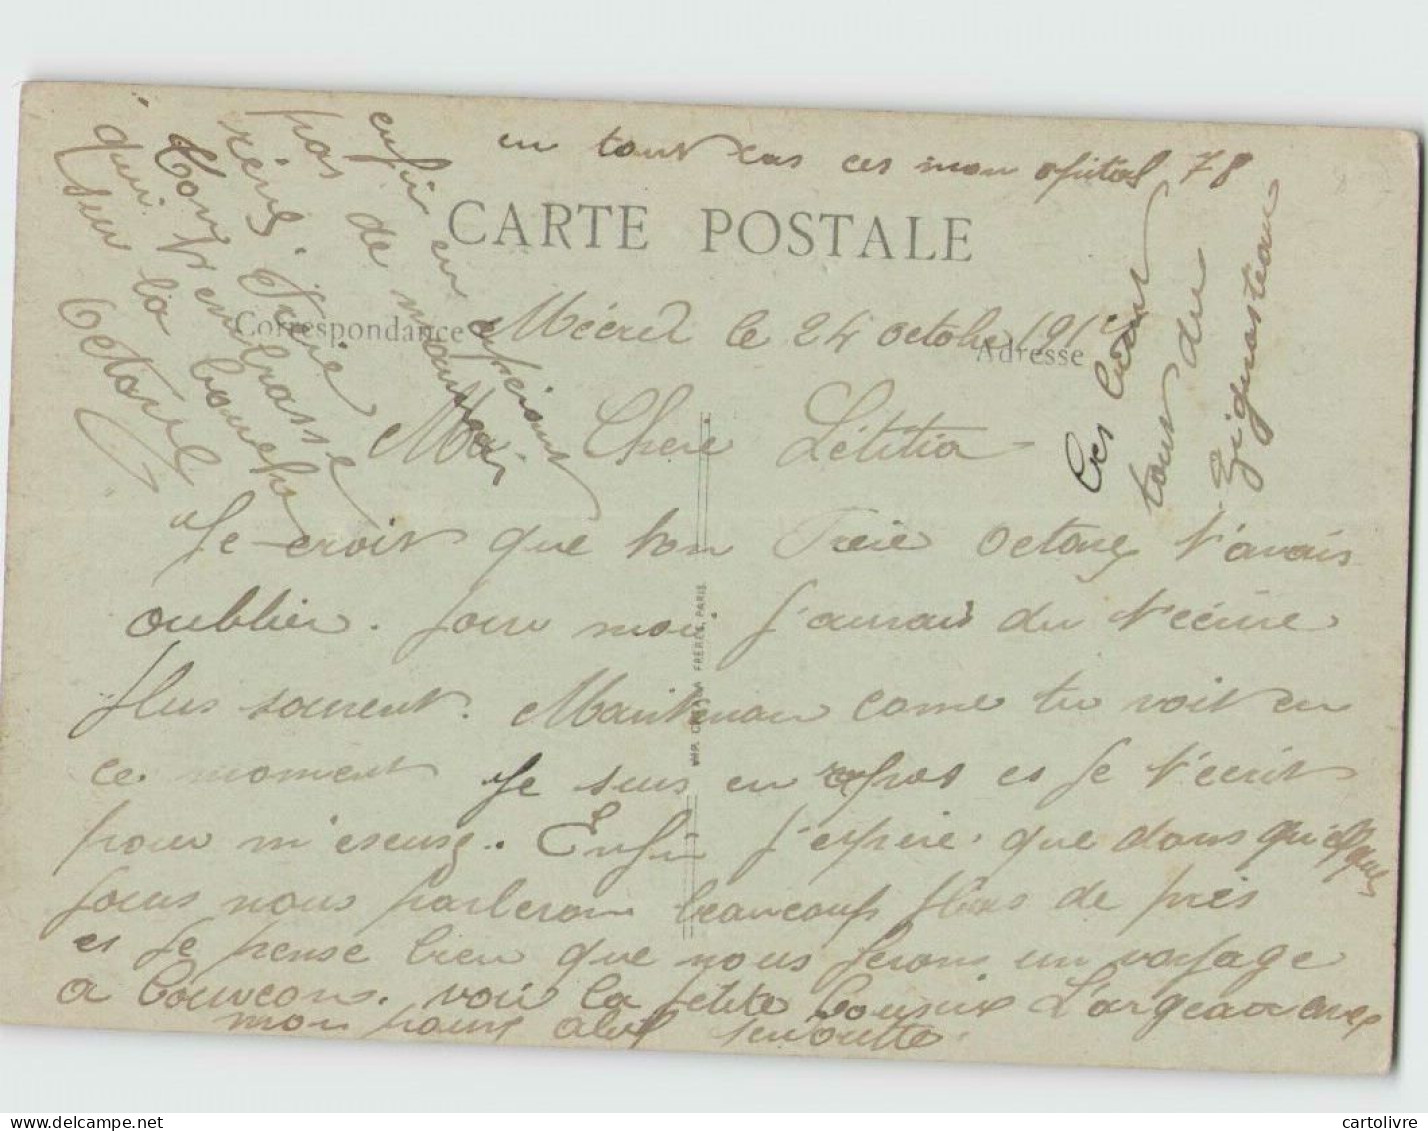 en tout cas ces mon opital 78
CARTE POSTALE
Correspondance
Adresse
le 24 octobre 191
Ma Chère Létitia
Je croit que ton Frère Octave t'avais
oublier. pour moi j'aurai du t'ecrire
plus souvent. Maintenan come tu voit en
ce moment Je suis en repos et je t'ecrit
pour m'escusé. Enfin j'espère que dans quelques
jours nous parleron beaucoup plus de près
et je pense bien que nous ferons un voyage
a voir la petite
mon
enfin en espérant
pas de mauvai
rien. Frère
Ton qui t'embrasse
sur la bouche
Octave
IMP. FRÈRES, PARIS
tout du